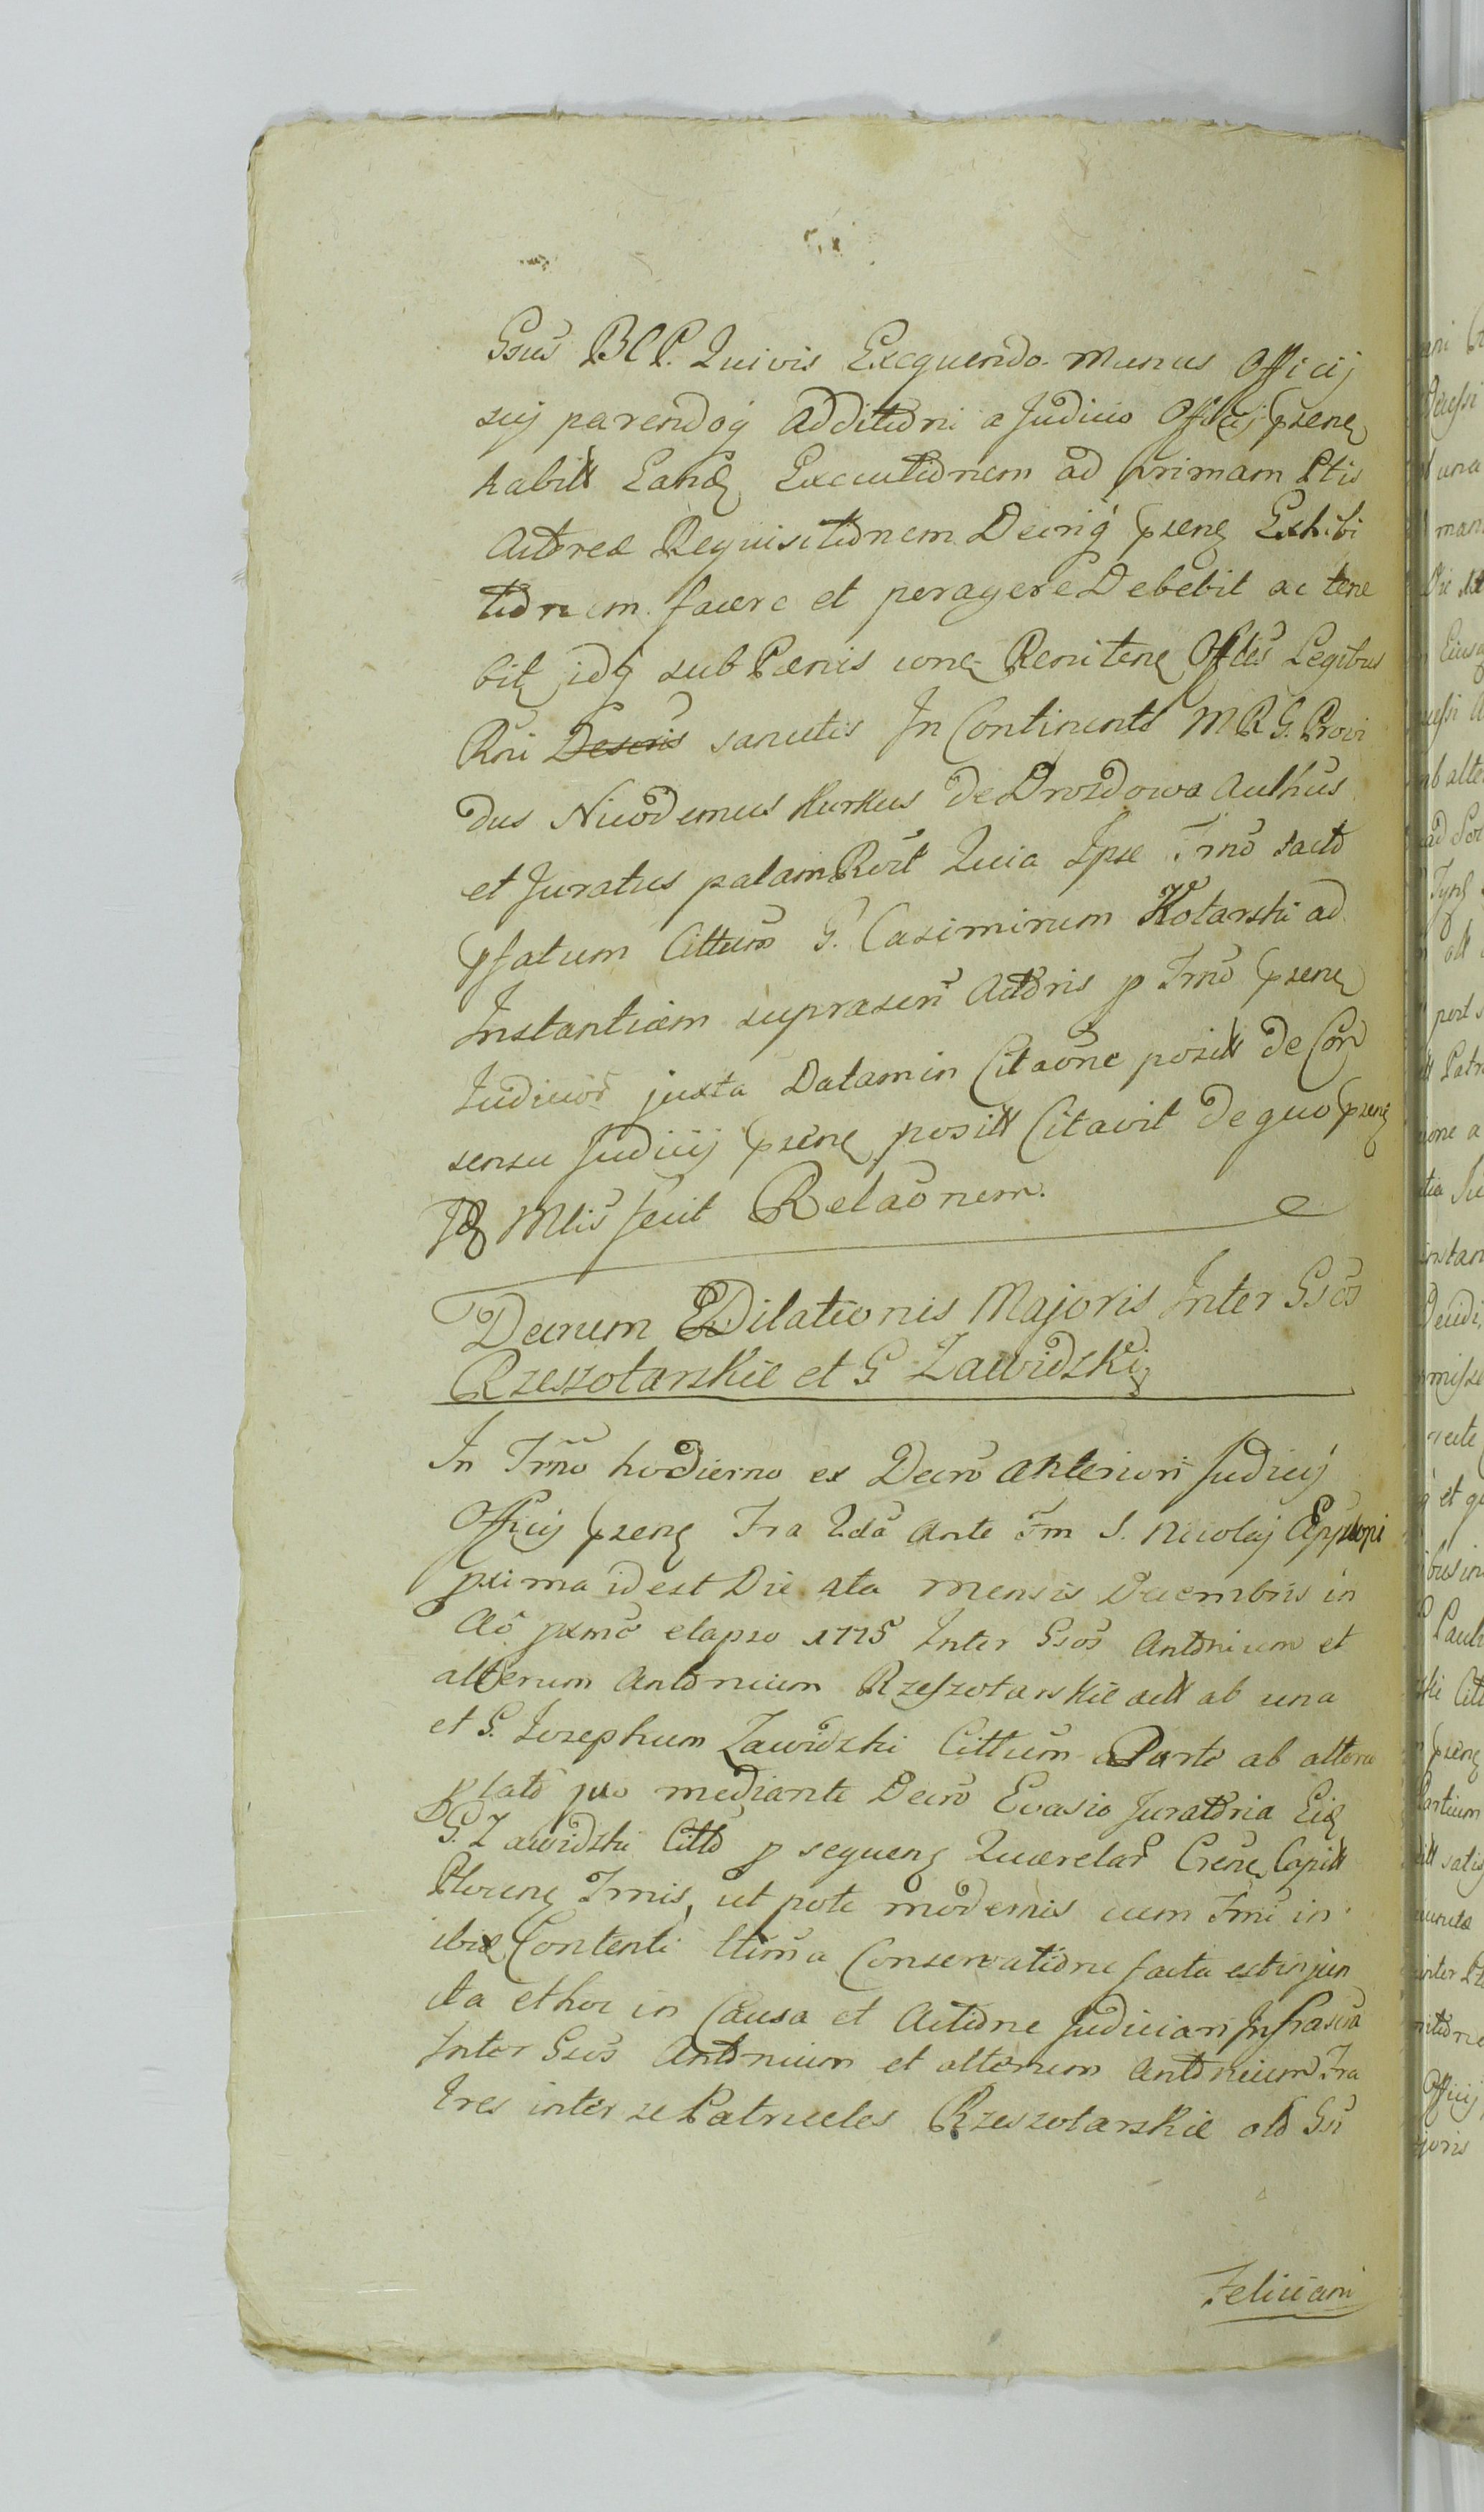 Gsus B C P. Quivis Exequendo Munus Officij
suj parendoq Additioni a Judicio Officij psenẽ
habitt Eande Executionem ad primam Ptis
Actoreæ Requisitionem Decriq psenẽ Exhibi
tionem facere et peragere Debebit ac tene
bit idq sub Pænis conẽ Renitenẽ Offles Legibus
Rni Descris sancitis In Continenti M R G. Provi
dus Nicodemus Kurkus de Drozdowa Authus
et Juratus palam Rclt Quia Ipse Trno tacto
pfatum Cittum G. Casimirum Kotarski ad
Instantiam suprascri Actoris p Trno psenẽ
Judicior juxta Datam in Citaõne positt de Con
sensu Judicij psenẽ positt Citavit de quo psenẽ
Ide Mlis fecit Relaõnem.
Decrum Dilationis Majoris Inter Gsos
Rzeszotarskie et G Zawidzki
In Trno hodierno ex Decro Anteriori Judicij
Officij psenẽ Fra 2da Ante Fm S. Nicolaj Eppi
pxima id est Die 4ta Mensis Decembris in
Aõ pxmõ elapso 1775 Inter Gsos Antonium et
alterum Antonium Rzeszotarskie actt ab una
et G. Josephum Zawidzki Cittum a Parte ab altera
plato quo mediante Decro Evasio Juratoria Eid
G. Zawidzki Citto p sequenẽ Querelar Crenẽ Capitt
Plocenẽ Trnis, ut pote modernis cum Trni in
ibi Contenti ltima Conservatione facta est injun
cta et hoc in Causa et Actione Judiciari Infrascra
Inter Gsos Antonium et alterum Antonium Fra
tres inter se Patrueles Rzeszotarskie old Gsi
Feliciani